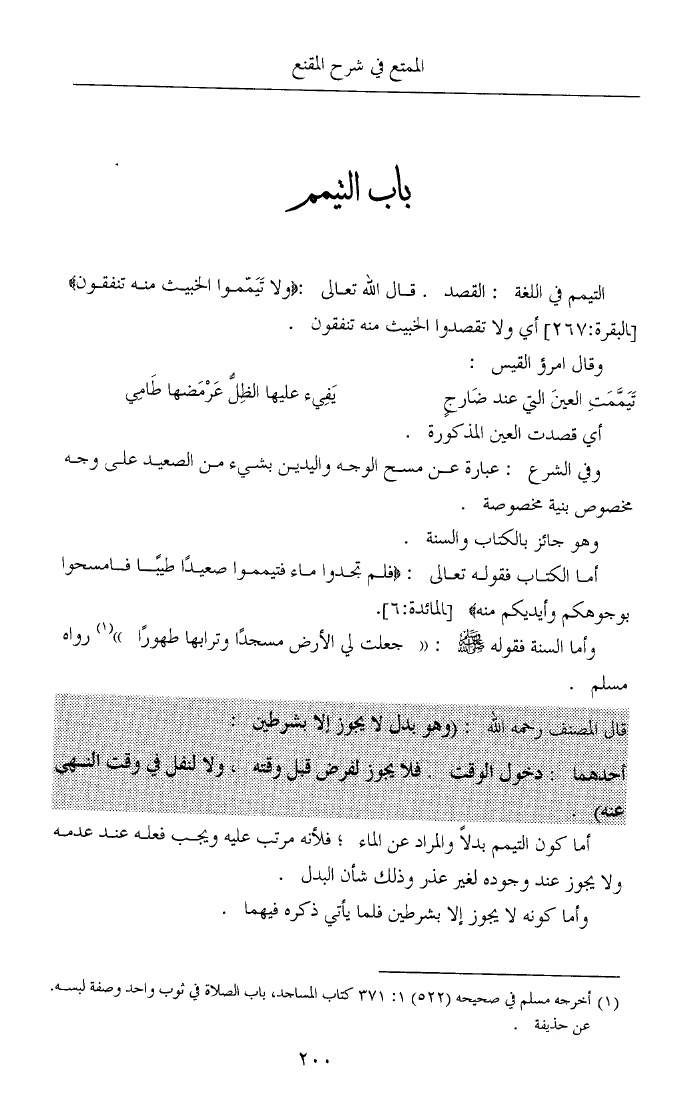 الممتع في شرح المقنع
باب التيمم
التيمم في اللغة : القصد . قال الله تعالى :﴿ولا تَيَمّموا الخبيث منه تنفقون﴾
[البقرة:٢٦٧] أي ولا تقصدوا الخبيث منه تنفقون .
وقال امرؤ القيس :
تَيَمَّمَتِ العينَ التي عند ضَارجٍ يَفِيء عليها الظلُّ عَرْمَضها طَامِي
أي قصدت العين المذكورة .
وفي الشرع : عبارة عن مسح الوجه واليدين بشيء من الصعيد على وجه
مخصوص بنية مخصوصة .
وهو جائز بالكتاب والسنة .
أما الكتاب فقوله تعالى : ﴿فلم تجدوا ماء فتيمموا صعيدًا طيبًا فامسحوا
بوجوهكم وأيديكم منه﴾ [المائدة:٦].
وأما السنة فقوله ﷺ : « جعلت لي الأرض مسجدًا وترابها طهورًا »(١) رواه
مسلم .
قال المصنف رحمه الله : (وهو بدل لا يجوز إلا بشرطين :
أحدهما : دخول الوقت . فلا يجوز لفرض قبل وقته ، ولا لنفل في وقت النهي
عنه) .
أما كون التيمم بدلاً والمراد عن الماء ؛ فلأنه مرتب عليه ويجب فعله عند عدمه
ولا يجوز عند وجوده لغير عذر وذلك شأن البدل .
وأما كونه لا يجوز إلا بشرطين فلما يأتي ذكره فيهما .
(١) أخرجه مسلم في صحيحه (٥٢٢) ١: ٣٧١ كتاب المساجد، باب الصلاة في ثوب واحد وصفة لبسه.
عن حذيفة .
٢٠٠